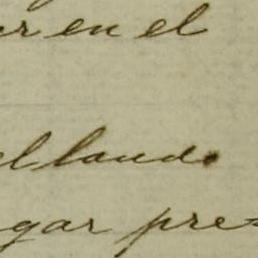 er en el
ellando
gar pre-